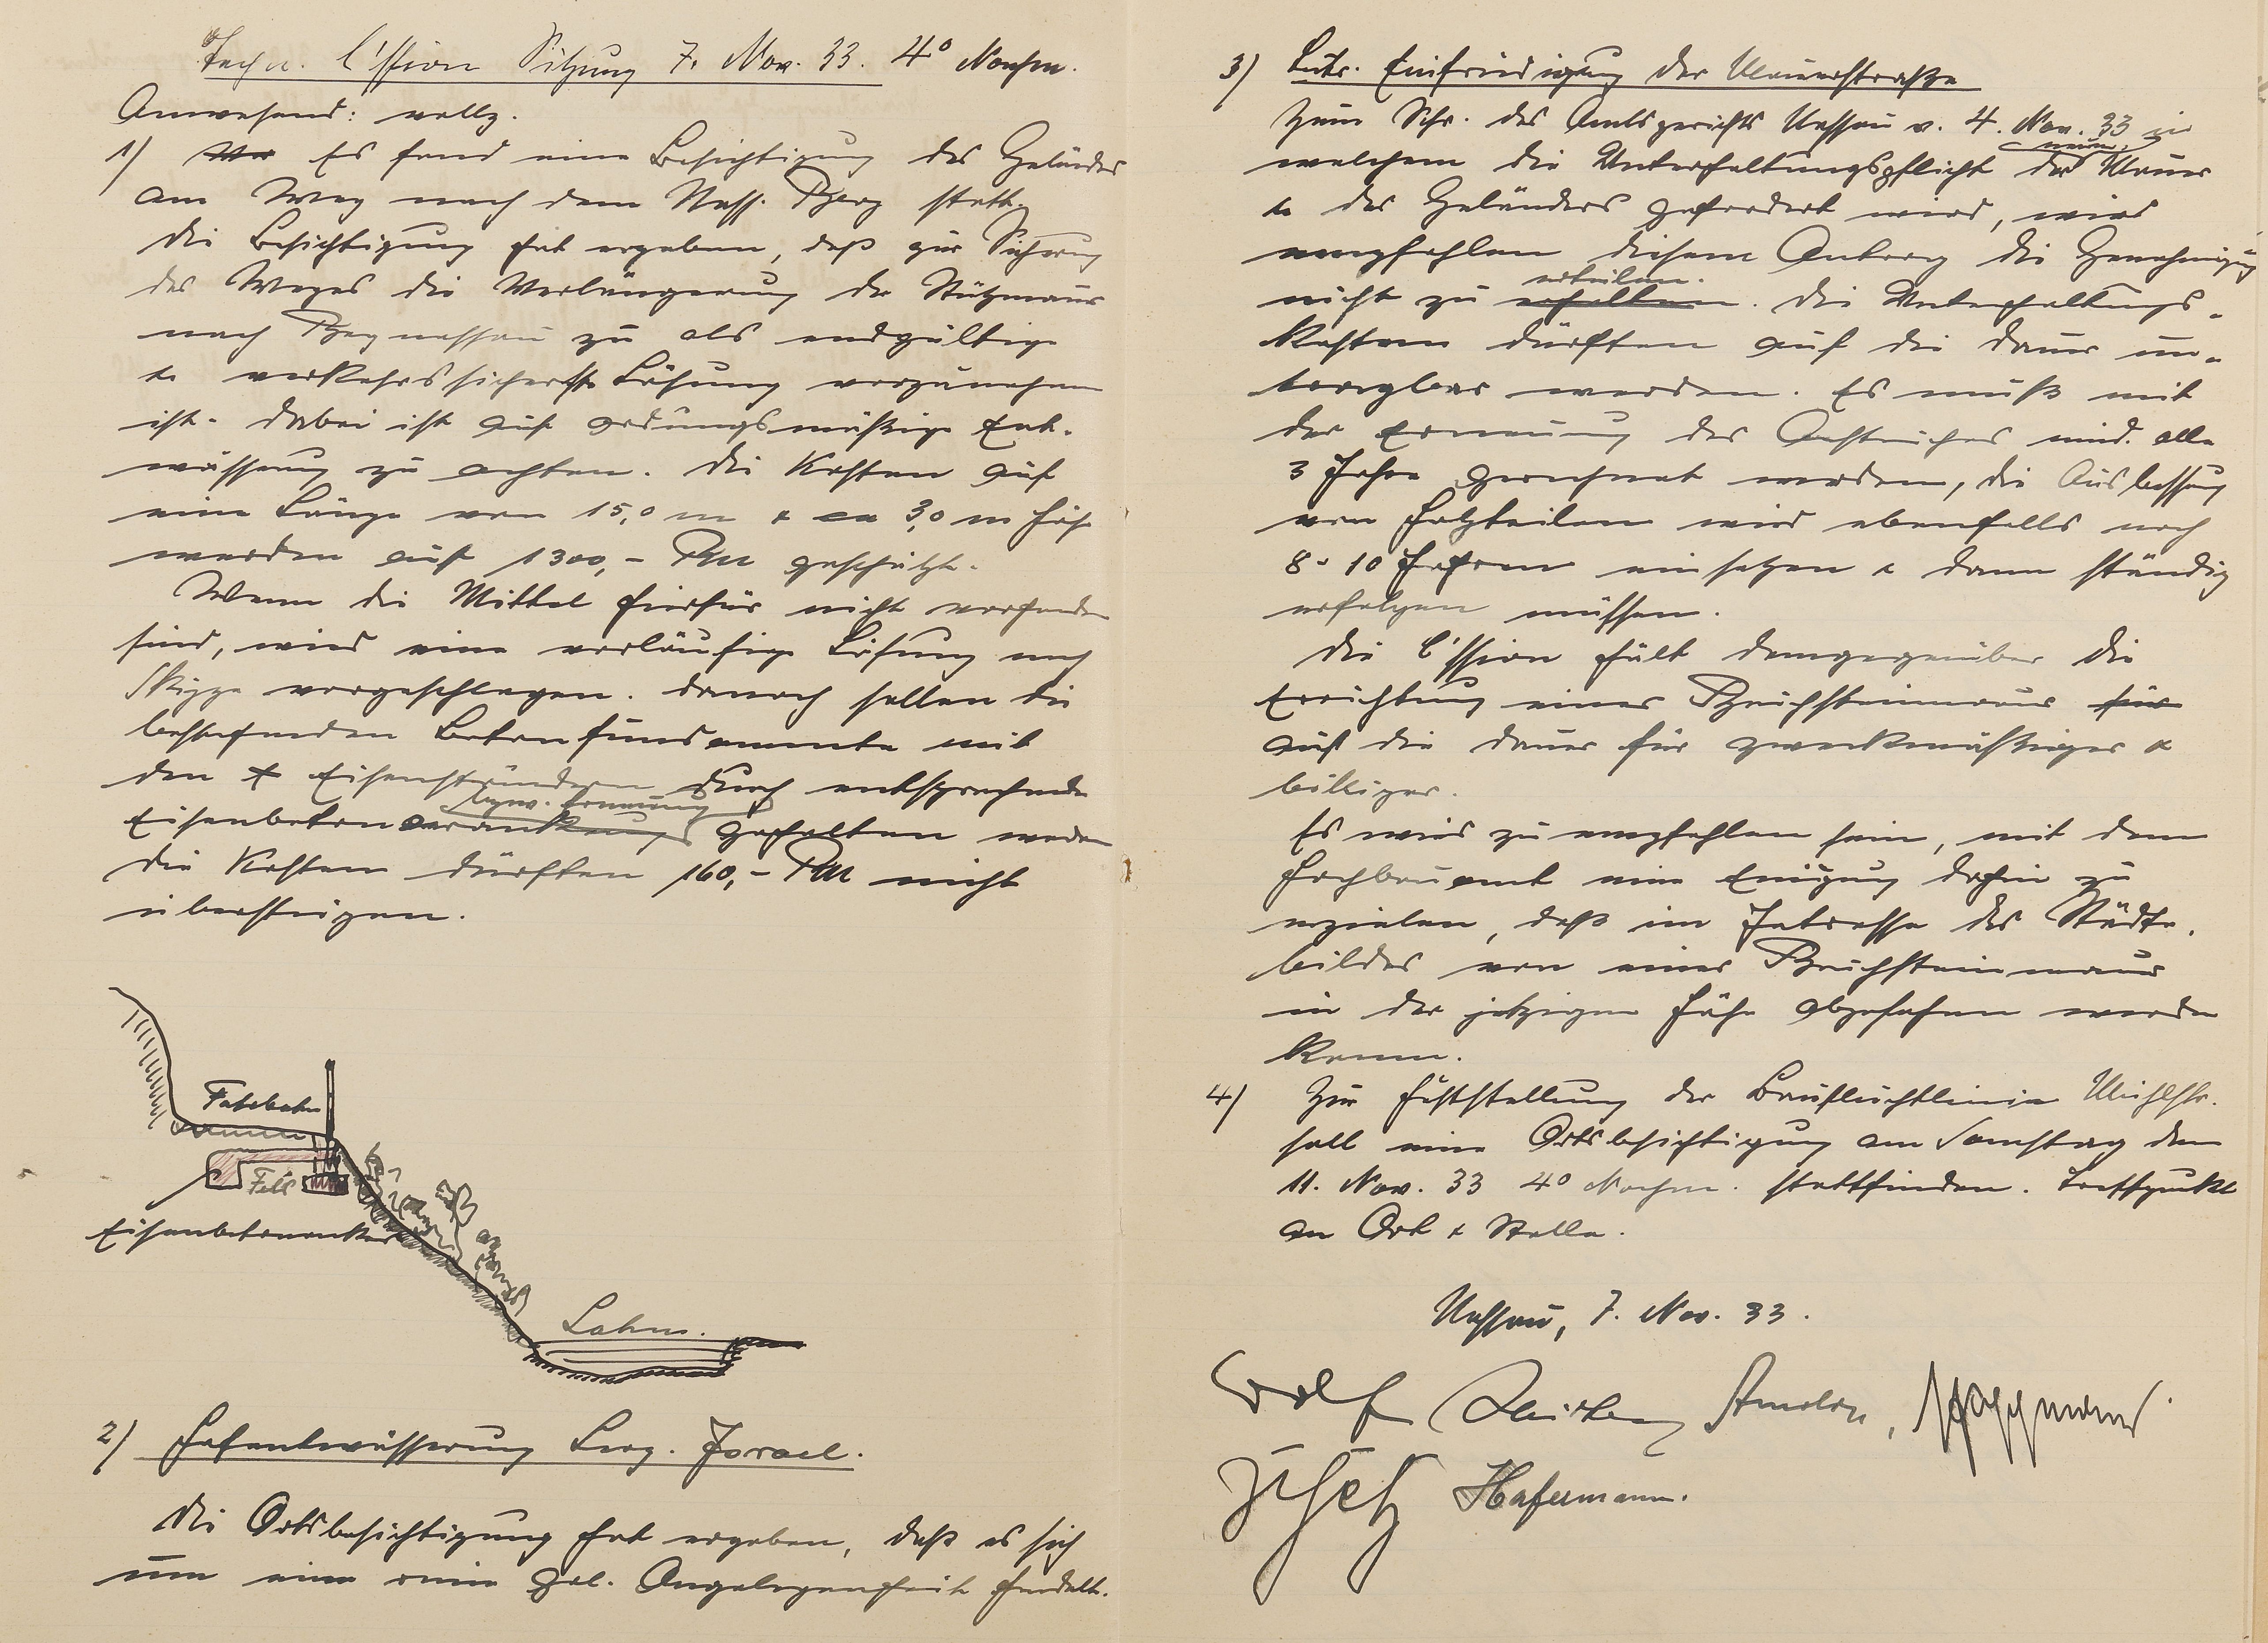 Techn. C'ssion Sitzung 7. Nov. 33. 4° Nachm.
Anwesend: vollz.
1) Es fand eine Besichtigung des Geländes
am Weg nach dem Nass. Berg statt.
Die Besichtigung hat ergeben, daß zur Sicherung
des Weges die Verlängerung der Stützmauer
nach Bergnassau zu als endgültige
u. verkehrssicherste Lösung vorzunehmen
ist. Dabei ist auf ordungsmäßige Ent-
wässerung zu achten. Die Kosten auf
eine Länge von 15,0 m & ca 3,0 m Höhe
werden auf 1300,- RM geschätzt.
Wenn die Mittel hierfür nicht vorhanden
sind, wird eine vorläufige Lösung nach
Skizze vorgeschlagen. Danach sollen die
bestehenden Betonfundamente mit
den Eisenständern durch entsprechende
bzw. Erneuerung
Eisenbetonverankerung gehalten werden
Die Kosten dürften 160,- RM nicht
übersteigen.
Fahrbahn
Fels
Eisenbetonanker
Lahn.
2) Hofentwässerung Berg. Israel.
Die Ortsbesichtigung hat ergeben, daß es sich
um eine reine pol. Angelegenheit handelt.
3) Betr. Einfriedigung der Mauerstraße
Zum Schr. des Amtsgerichts Nassau v. 4. Nov. 33 in
neuen
welchem die Unterhaltungspflicht der Mauer
u. des Geländers gefordert wird, wird
empfohlen diesem Antrag die Genehmigung
erteilen.
nicht zu erhalten. Die Unterhaltungs-
kosten dürften auf die Dauer un-
tragbar werden. Es muß mit
der Erneuung des Anstriches mind. alle
3 Jahre gerechnet werden, die Ausbesserung
von Holzteilen wird ebenfalls nach
8-10 Jahren einsetzen & dann ständig
erfolgen müssen.
Die C'ssion hält demgegenüber die
Errichtung einer Bruchsteinmauer für
auf die Dauer für zweckmäßiger &
billiger.
Es wird zu empfehlen sein, mit dem
Hochbauamt eine Einigung dahin zu
erzielen, daß im Interesse des Städte-
bildes von einer Bruchsteinmauer
in der jetzigen Höhe abgesehen werden
kann.
4) Zur Feststellung der Baufluchtlinie Mühlstr.
soll eine Ortsbesichtigung am Samstag den
11. Nov. 33 4° Nachm. stattfinden. Treffpunkt
an Ort & Stelle.
Nassau, 7. Nov. 33.
Wolf
Hafermann.